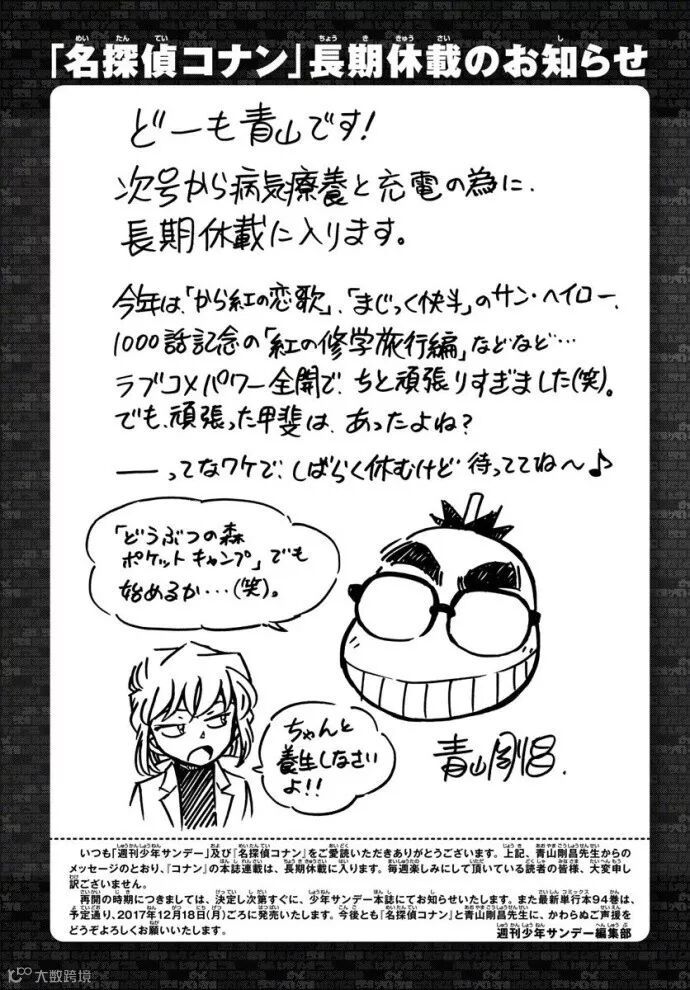 「名探偵コナン」長期休載のお知らせ
どーも青山です!
次号から病気療養と充電の為に、
長期休載に入ります。
今年は、「から紅の恋歌」、「まじっく快斗」のサン・ヘイロー、
1000話記念の「紅の修学旅行編」などなど…
ラブコメパワー全開で、ちと頑張りすぎました(笑)。
でも、頑張った甲斐は、あったよね?
──ってなワケで、しばらく休むけど待っててね〜♪
「どうぶつの森
ポケットキャンプ」でも
始めるか・・・(笑)。
ちゃんと
養生しなさい
よ!!
青山剛昌.
いつも「週刊少年サンデー」及び『名探偵コナン』をご愛読いただきありがとうございます。上記、青山剛昌先生からの
メッセージのとおり、『コナン』の本誌連載は、長期休載に入ります。毎週楽しみにして頂いている読者の皆様、大変申し
訳ございません。
再開の時期につきましては、決定し次第すぐに、少年サンデー本誌にてお知らせいたします。また最新単行本94巻は、
予定通り、2017年12月18日(月)ごろに発売いたします。今後とも『名探偵コナン』と青山剛昌先生に、かわらぬご声援を
どうぞよろしくお願いいたします。
週刊少年サンデー編集部
大数跨境